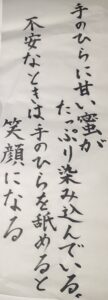 手のひらに甘い蜜が
たっぷり染み込んでいる。
不安なときは手のひらを舐めると
笑顔になる